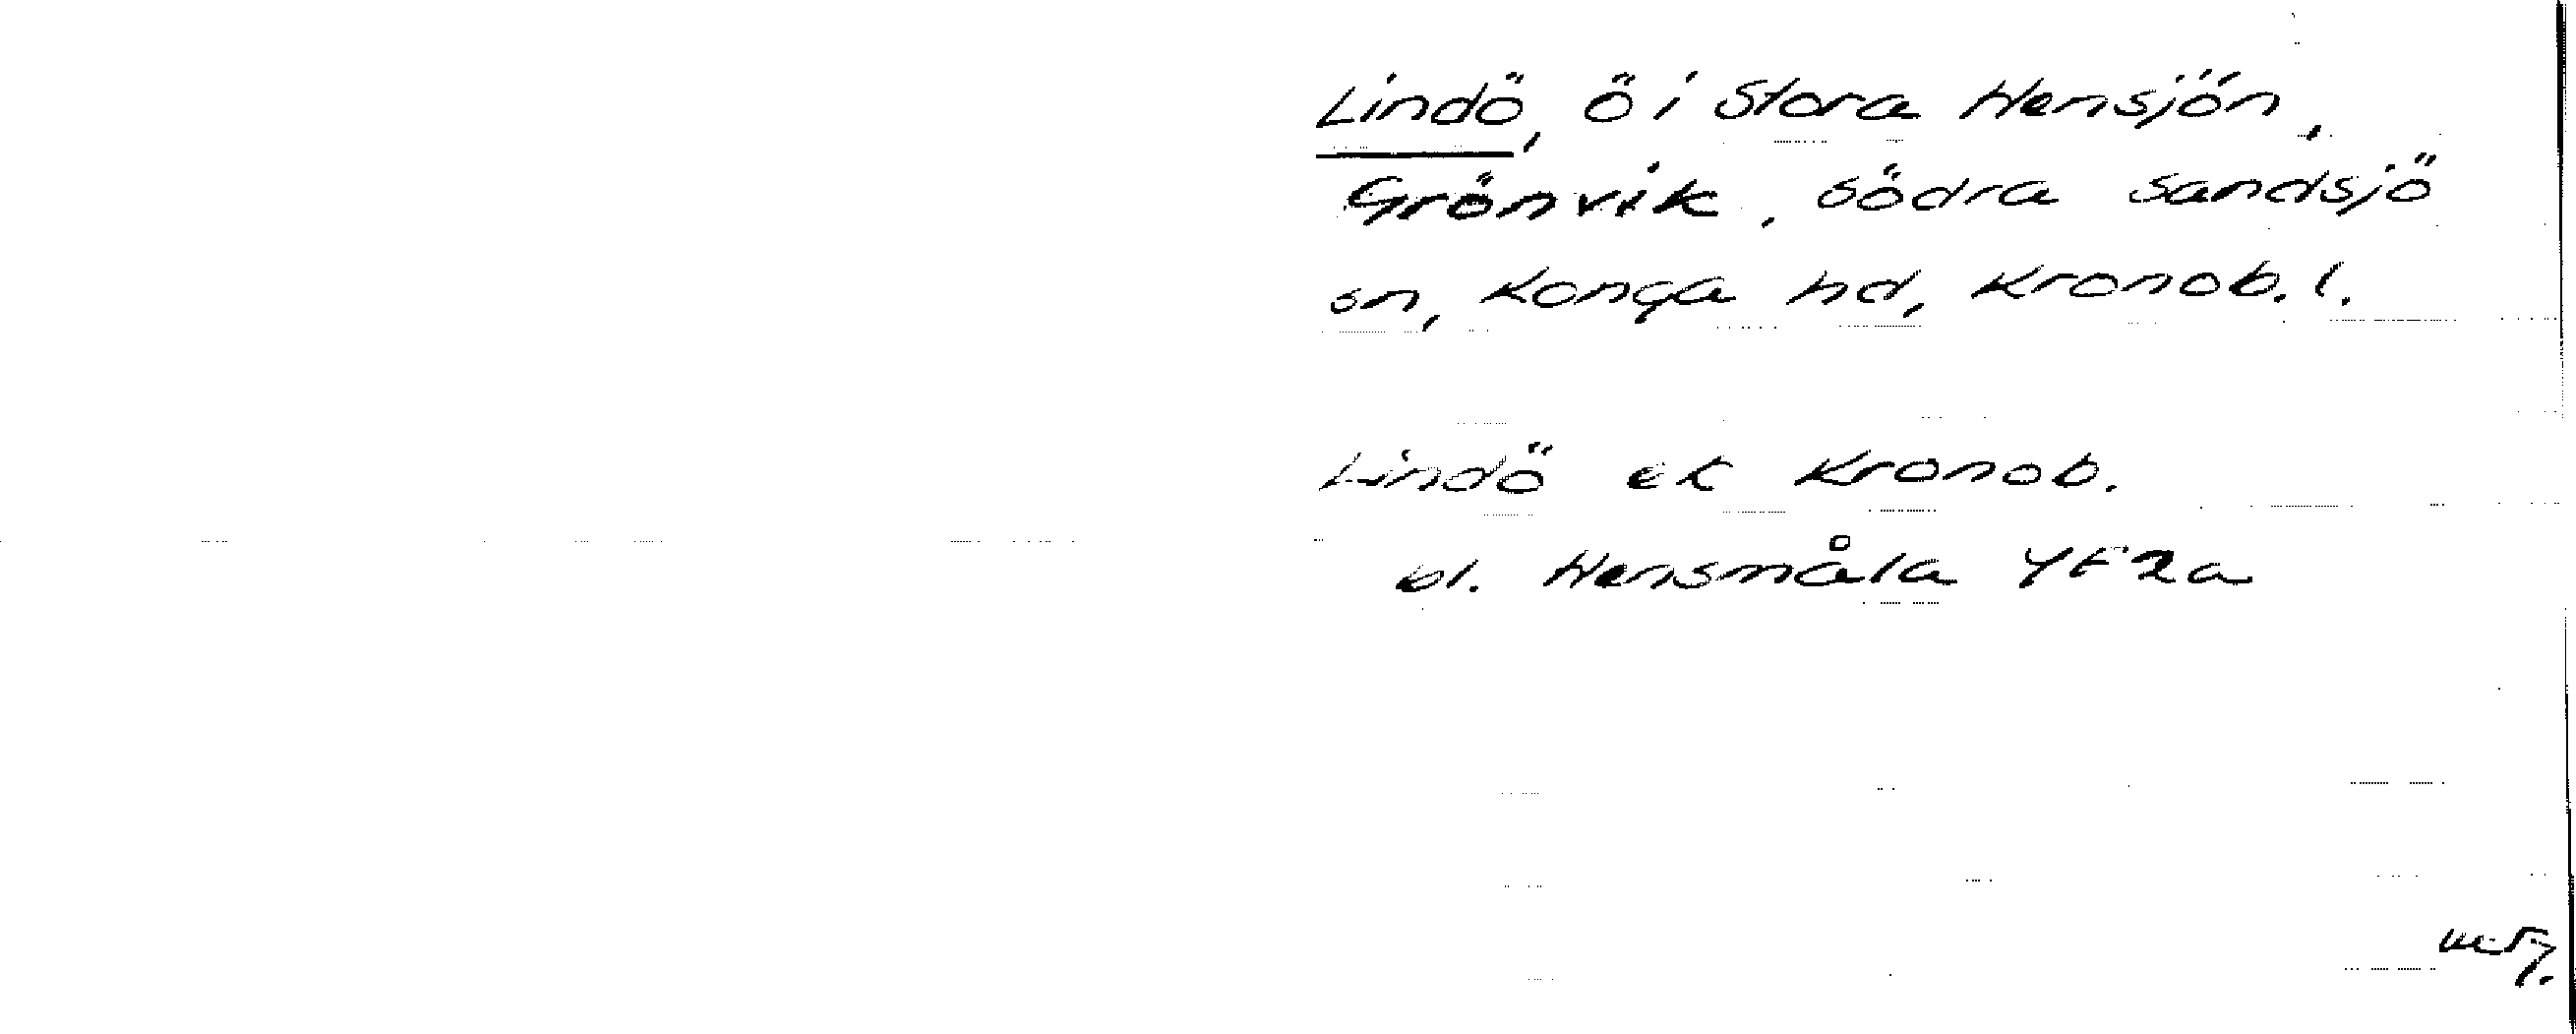 Lindö, ö i Stora Hensjön,
Grönvik, södra sandsjö
sn, Konga hd, Kronob. l.
Lindö ek Kronob.
bl. Hensmåla 4F2a